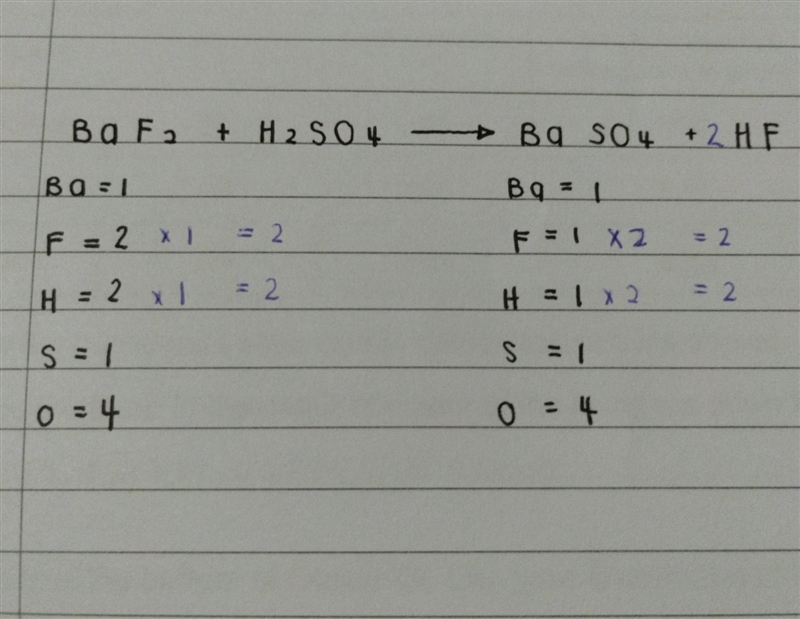 BaF2 + H2SO4 → BaSO4 + 2HF
Ba = 1 Ba = 1
F = 2 x 1 = 2 F = 1 x 2 = 2
H = 2 x 1 = 2 H = 1 x 2 = 2
S = 1 S = 1
O = 4 O = 4